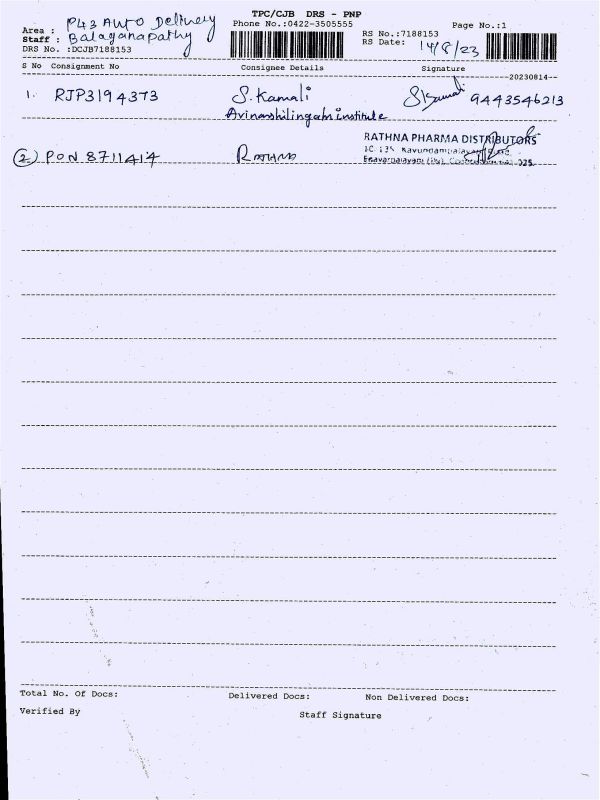 TPC/CJB DRS - PNP
Area : P43 Auto Delivery
Phone No.:0422-3505555
Page No.:1
Staff : Balaganapathy
RS No.:7188153
DRS No. :DCJB7188153
RS Date: 14/8/23
S No Consignment No Consignee Details Signature
--20230814--
1. RJP3194373 S. Kamali 9443546213
Avinashilingam institute
RATHNA PHARMA DISTRIBUTORS
(2) PON 8711414 RATHNA
Total No. Of Docs: Delivered Docs: Non Delivered Docs:
Verified By Staff Signature